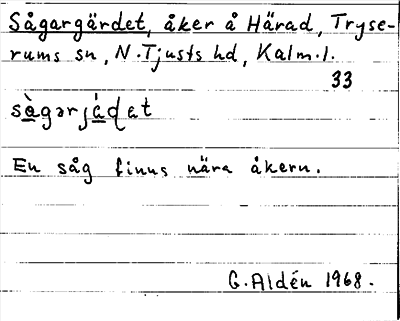 Sågargärdet, åker å Härad, Tryse-
rums sn, N. Tjusts hd, Kalm. l.
33
En såg finns nära åkern.
G. Aldén 1968.